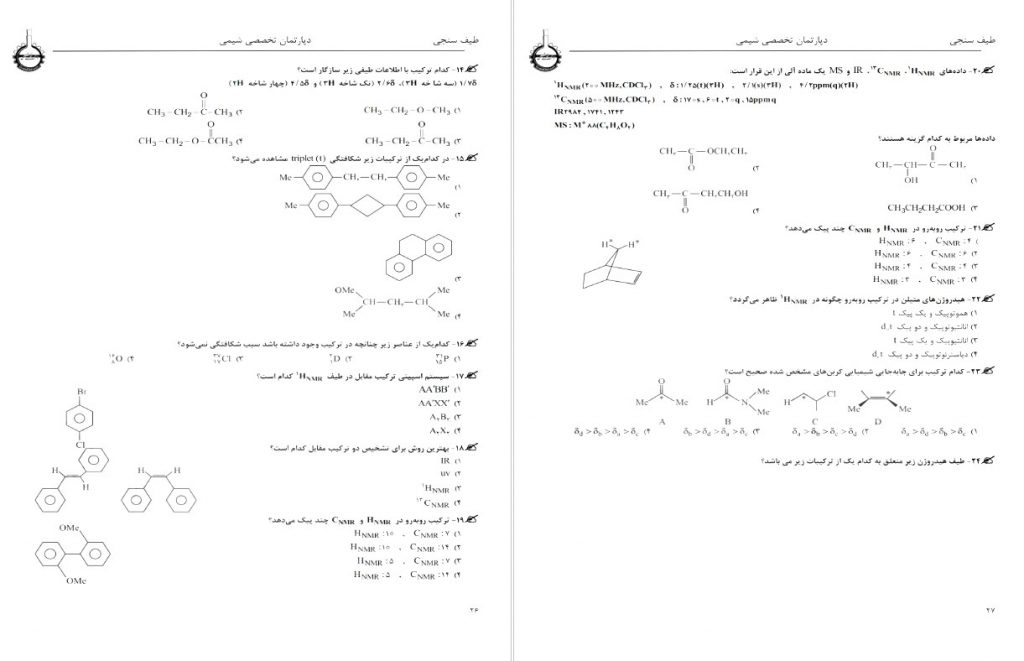 طیف سنجی
دپارتمان تخصصی شیمی
۱۴- کدام ترکیب با اطلاعات طیفی زیر سازگار است؟
۱/۷δ (سه شاخه ۳H)، ۲/۶δ (تک شاخه ۳H) و ۴/۵δ (چهار شاخه ۲H)
۱) CH₃–CH₂–O–CH₃
۲) CH₃–CH₂–C–CH₃
O
۳) CH₃–CH₂–C–CH₃
O
۴) CH₃–CH₂–O–CCH₃
O
۱۵- در کدام‌یک از ترکیبات زیر شکافتگی triplet (t) مشاهده می‌شود؟
Me CH₂–CH₂ Me
۱)
Me Me
۲)
۳)
OMe Me
CH–CH₂–CH
Me Me
۴)
۱۶- کدام‌یک از عناصر زیر چنانچه در ترکیب وجود داشته باشد سبب شکافتگی نمی‌شود؟
۱) ³¹₁₅P ۲) ²₁D ۳) ³⁷₁₇Cl ۴) ¹⁶₈O
۱۷- سیستم اسپینی ترکیب مقابل در طیف ¹HNMR کدام است؟
۱) AA'BB'
۲) AA'XX'
۳) A₂B₂
۴) A₂X₂
Br
Cl
۱۸- بهترین روش برای تشخیص دو ترکیب مقابل کدام است؟
۱) IR
۲) uv
۳) ¹HNMR
۴) ¹³CNMR
H
H
H H
۱۹- ترکیب روبه‌رو در HNMR و CNMR چند پیک می‌دهد؟
۱) HNMR : ۱۰ ، CNMR : ۷
۲) HNMR : ۱۰ ، CNMR : ۱۴
۳) HNMR : ۵ ، CNMR : ۷
۴) HNMR : ۵ ، CNMR : ۱۴
OMe
OMe
۲۶
طیف سنجی
دپارتمان تخصصی شیمی
۲۰- داده‌های ¹HNMR، ¹³CNMR، IR و MS یک ماده آلی از این قرار است:
¹HNMR(۲۰۰ MHz,CDCl₃) , δ:۱/۲۵(t)(۳H) , ۲/۱(s)(۳H) , ۴/۲ppm(q)(۲H)
¹³CNMR(۵۰۰ MHz,CDCl₃) , δ:۱۷۰s,۶۰t,۲۰q,۱۵ppmq
IR۲۹۸۴,۱۷۴۱,۱۲۴۳
MS : M⁺ ۸۸(C₄H₈O₂)
داده‌ها مربوط به کدام گزینه هستند؟
O
CH₃–CH–C–CH₃
OH
۱)
CH₃–C–OCH₂CH₃
O
۲)
۳) CH3CH2CH2COOH
CH₃–C–CH₂CH₂OH
O
۴)
۲۱- ترکیب روبه‌رو در HNMR و CNMR چند پیک می‌دهد؟
۱) HNMR : ۶ ، CNMR : ۴
۲) HNMR : ۶ ، CNMR : ۶
۳) HNMR : ۴ ، CNMR : ۴
۴) HNMR : ۲ ، CNMR : ۲
H* *H
۲۲- هیدروژن‌های متیلن در ترکیب روبه‌رو چگونه در ¹HNMR ظاهر می‌گردد؟
۱) هموتوپیک و یک پیک t
۲) انانتیوتوپیک و دو پیک d,t
۳) انانتیوپیک و یک پیک t
۴) دیاسترئوتوپیک و دو پیک d,t
۲۳- کدام ترکیب برای جابه‌جایی شیمیایی کربن‌های مشخص شده صحیح است؟
O
Me * Me
A
O
H * N Me
Me
B
H * Cl
C
*
Me Me
D
۱) δa > δd > δb > δc ۲) δa > δb > δc > δd ۳) δb > δd > δa > δc ۴) δd > δb > δa > δc
۲۴- طیف هیدروژن زیر متعلق به کدام یک از ترکیبات زیر می باشد؟
۲۷